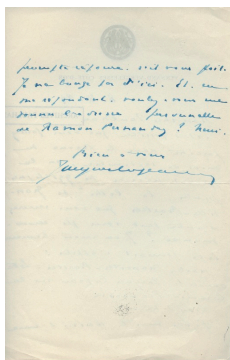 prompte réponse, s'il vous plaît.
Je ne bouge pas d'ici. Et, en
me répondant, voulez-vous me
donner l'adresse personnelle
de Ramon ? Merci.
Bien à vous